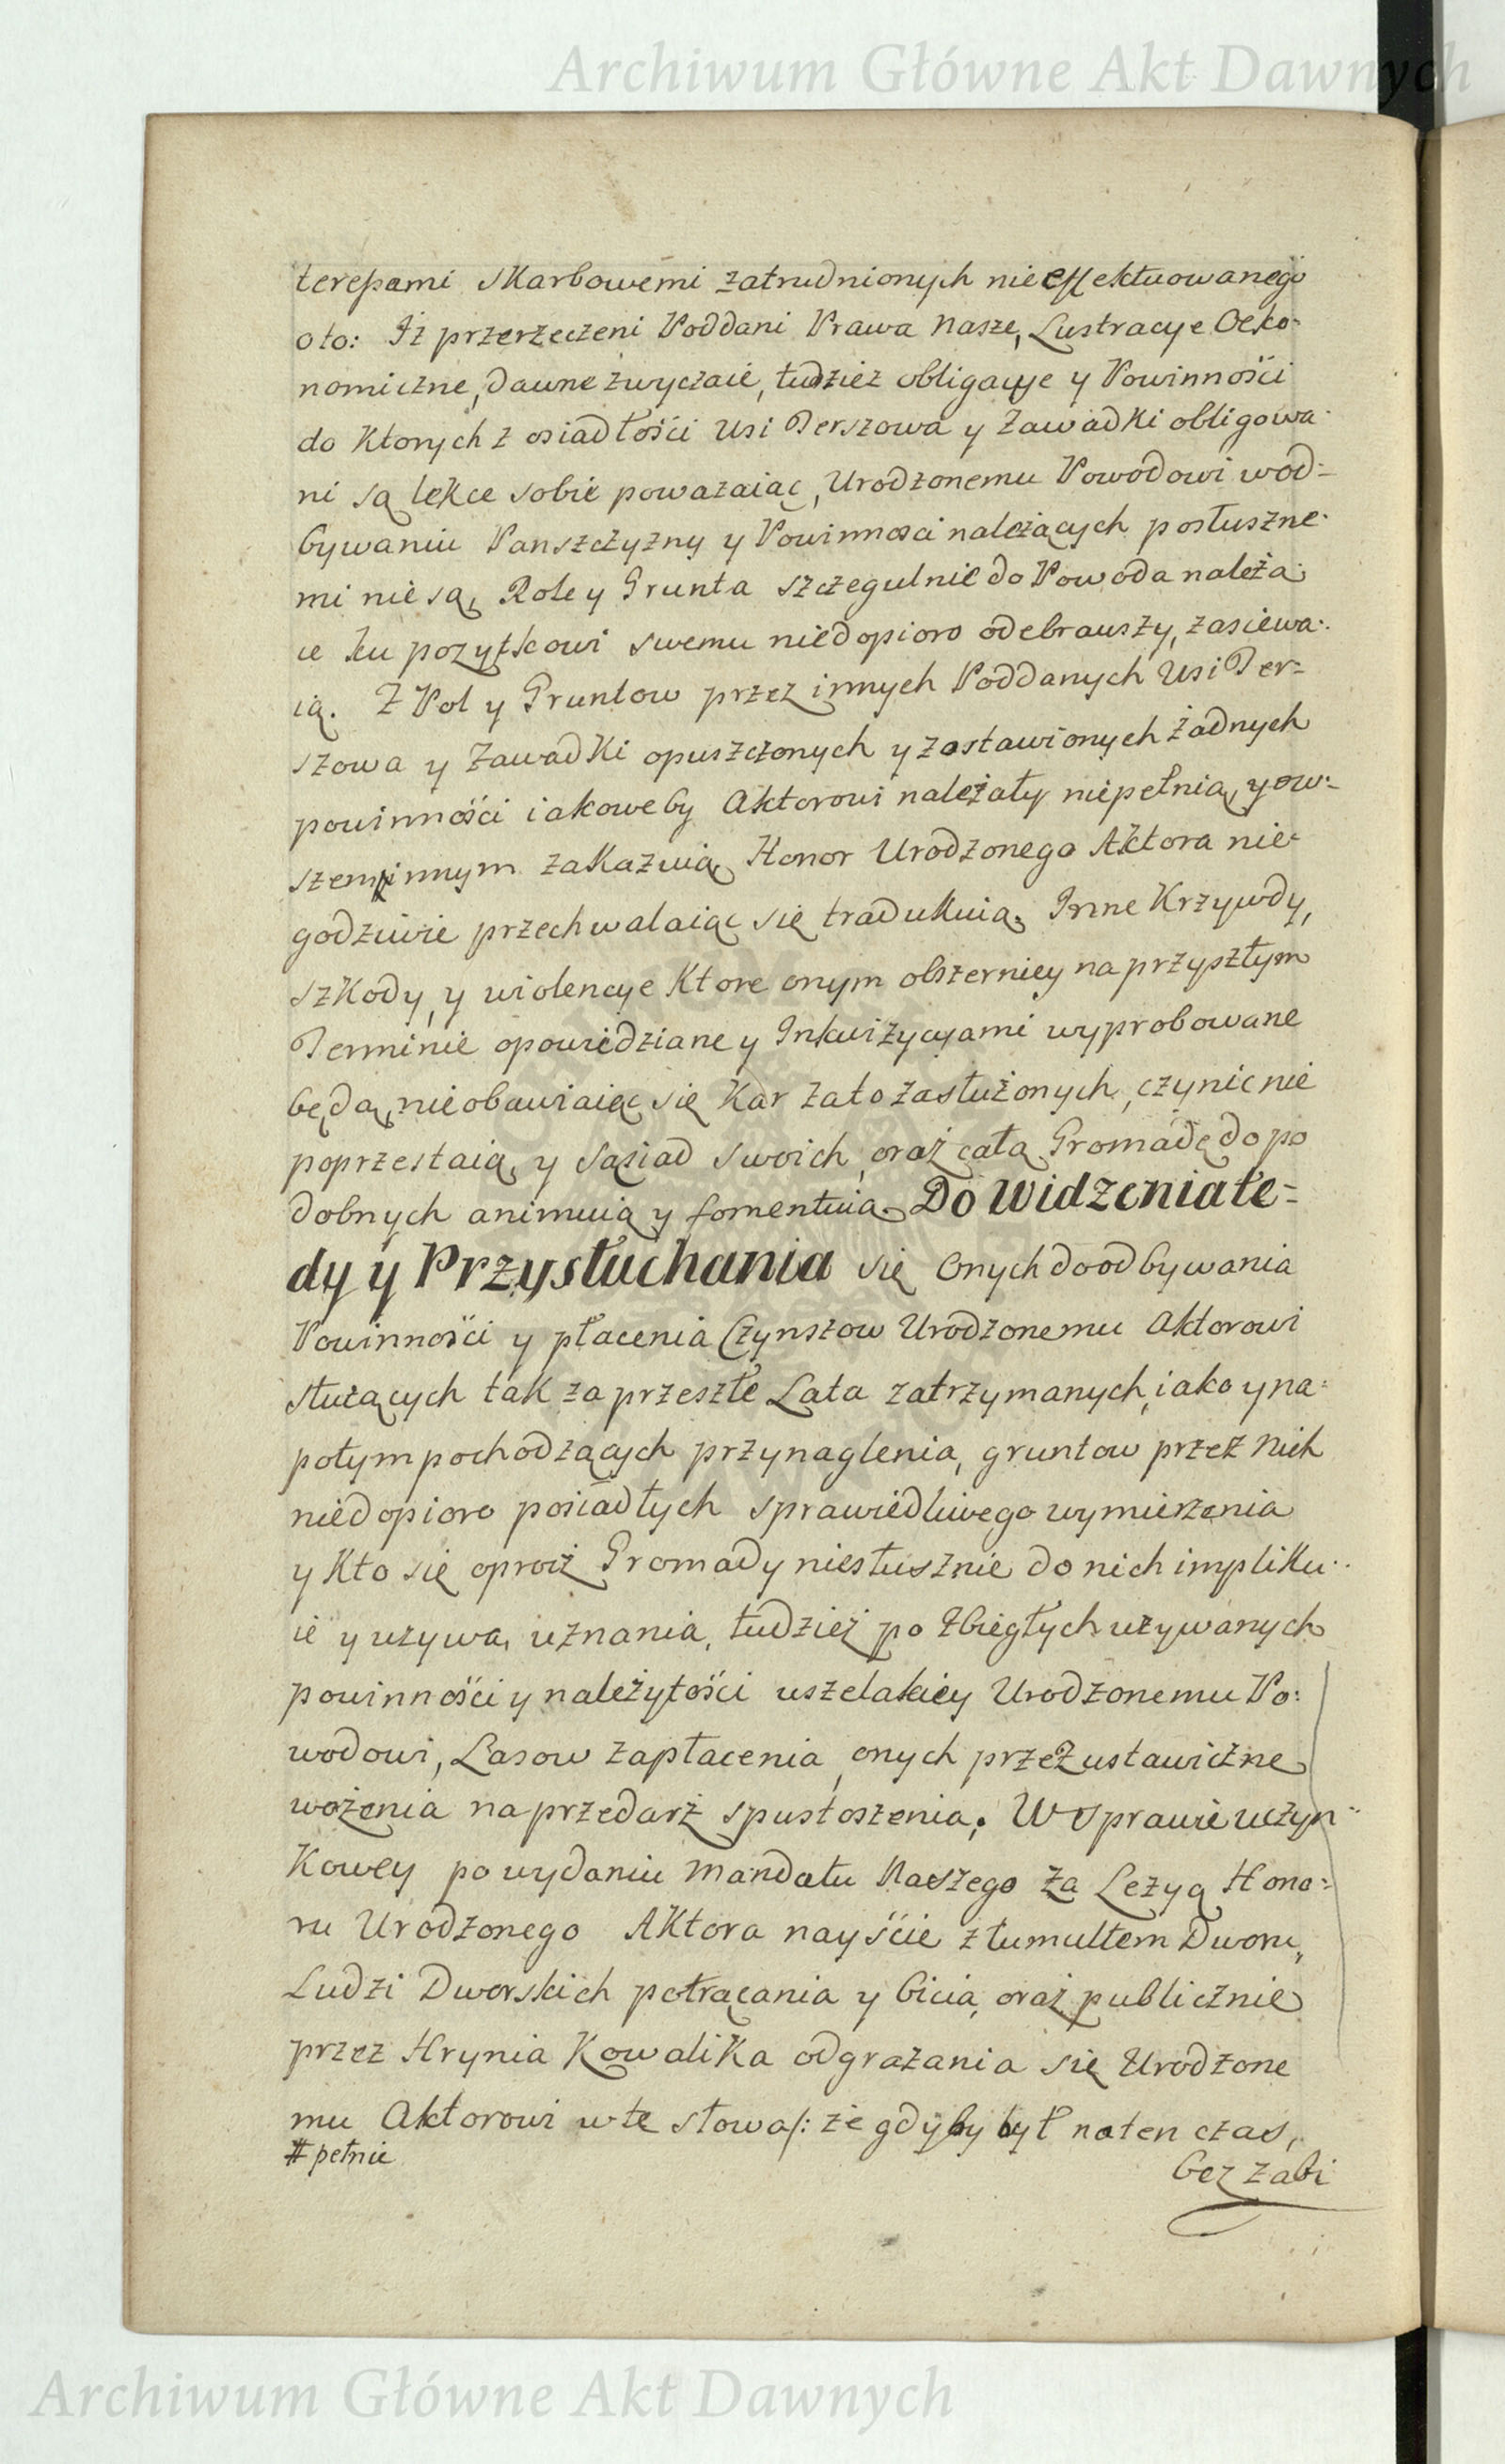 Archiwum Główne Akt Dawnych
teressami skarbowemi zatrudnionych nie effektuowanego
oto: Iż przerzeczeni Poddani Prawa Nasze, Lustracye Oeko-
nomiczne, dawne zwyczaie, tudzież obligacye y Powinności
do ktorych z osiadłości wsi Terszowa y Zawadki obligowa-
ni są lekce sobie poważaiąc, Urodzonemu Powodowi wod-
bywaniu Panszczyzny y Powinnosci należących posłuszne-
mi nie są, Role y Grunta szczegulnie do Powoda należą-
ce ku pozytkowi swemu niedopioro odebrawszy, zasiewa-
ią. Z Pol y Gruntow przez innych Poddanych Wsi Ter-
szowa y Zawadki opuszczonych y zostawionych żadnych
powinności iakoweby Aktorowi należały niepełnią, y ow-
szem # innym zakazuią Honor Urodzonego Aktora nie-
godziwie przechwalaiąc się tradukuią. Inne Krzywdy,
szkody, y wiolencye Ktore onym obszerniey na przyszłym
Terminie opowiedziane y Inkwizycyami wyprobowane
będą, nieobawiaiąc się Kar zato zasłużonych, czynic nie
poprzestaią, y Sąsiad swoich, oraz całą Gromadę do po
dobnych animuią y fomentuią. Do Widzenia te-
dy y Przysłuchania się Onych do odbywania
Powinności y płacenia Czynszow Urodzonemu Aktorowi
służących tak za przeszłe Lata zatrzymanych, iako y na-
potym pochodzących przynaglenia, gruntow przez Nich
niedopioro posiadłych sprawiedliwego wymierzenia
y Kto się oprocz Gromady niesłusznie do nich impliku-
ie y uzywa, uznania, tudzież po Zbiegłych używanych
powinności y należytości wszelakiey Urodzonemu Po-
wodowi, Lasow zapłacenia, onych przez ustawiczne
wożenia na przedarz spustoszenia. W Sprawie uczyn-
kowey po wydaniu Mandatu Naszego za Lezyą Hono-
ru Urodzonego Aktora nayście z tumultem Dworu,
Ludzi Dworskich potrącania y bicia, oraz publicznie
przez Hrynia Kowalika odgrażania się Urodzone
mu Aktorowi w te słowa /: że gdyby był naten czas,
# pełnic
bez zabi
Archiwum Główne Akt Dawnych